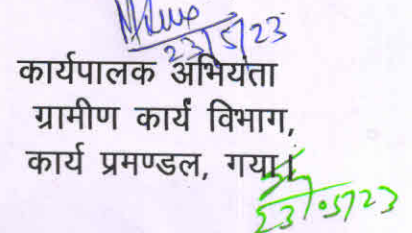 23/5/23
कार्यपालक अभियंता
ग्रामीण कार्य विभाग,
कार्य प्रमण्डल, गया।
23/05/23